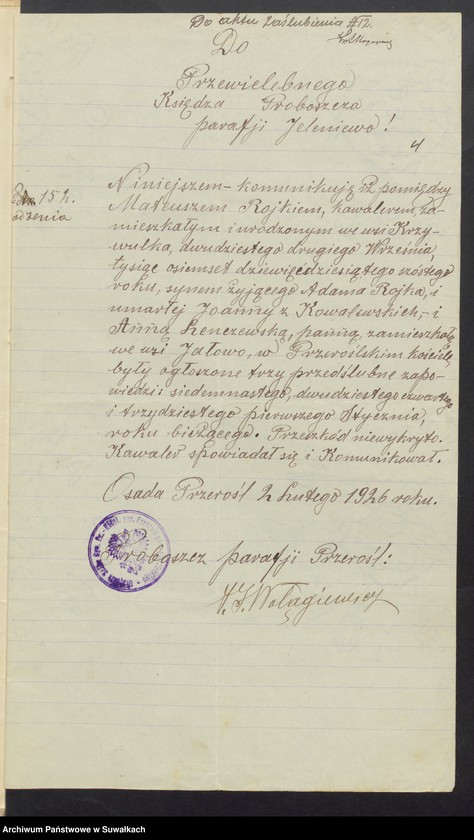 Do aktu zaślubienia #12.
Do
Przewielebnego
Księdza Proboszcza
parafji Jeleniewo!
4
15 r.
Niniejszem komunikuję iż pomiędzy
Mateuszem Rojkiem, kawalerem, za-
mieszkałym i urodzonym we wsi Krzy-
wulka, dwudziestego drugiego Września,
tysiąc osiemset dziewięćdziesiątego szóstego
roku, synem żyjącego Adama Rojka, i
umarłej Joanny z Kowalewskich, - i
Anną Lenczewską, panną, zamieszkałą
we wsi Jałowo, w Przeroślskim kościele
były ogłoszone trzy przedślubne zapo-
wiedzi siedemnastego, dwudziestego czwartego
i trzydziestego pierwszego Stycznia,
roku bieżącego. Przeszkód niewykryto.
Kawaler spowiadał się i Komunikował.
Osada Przerośl 2 Lutego 1926 roku.
Proboszcz parafji Przerośl:
Wołągiewicz
Archiwum Państwowe w Suwałkach